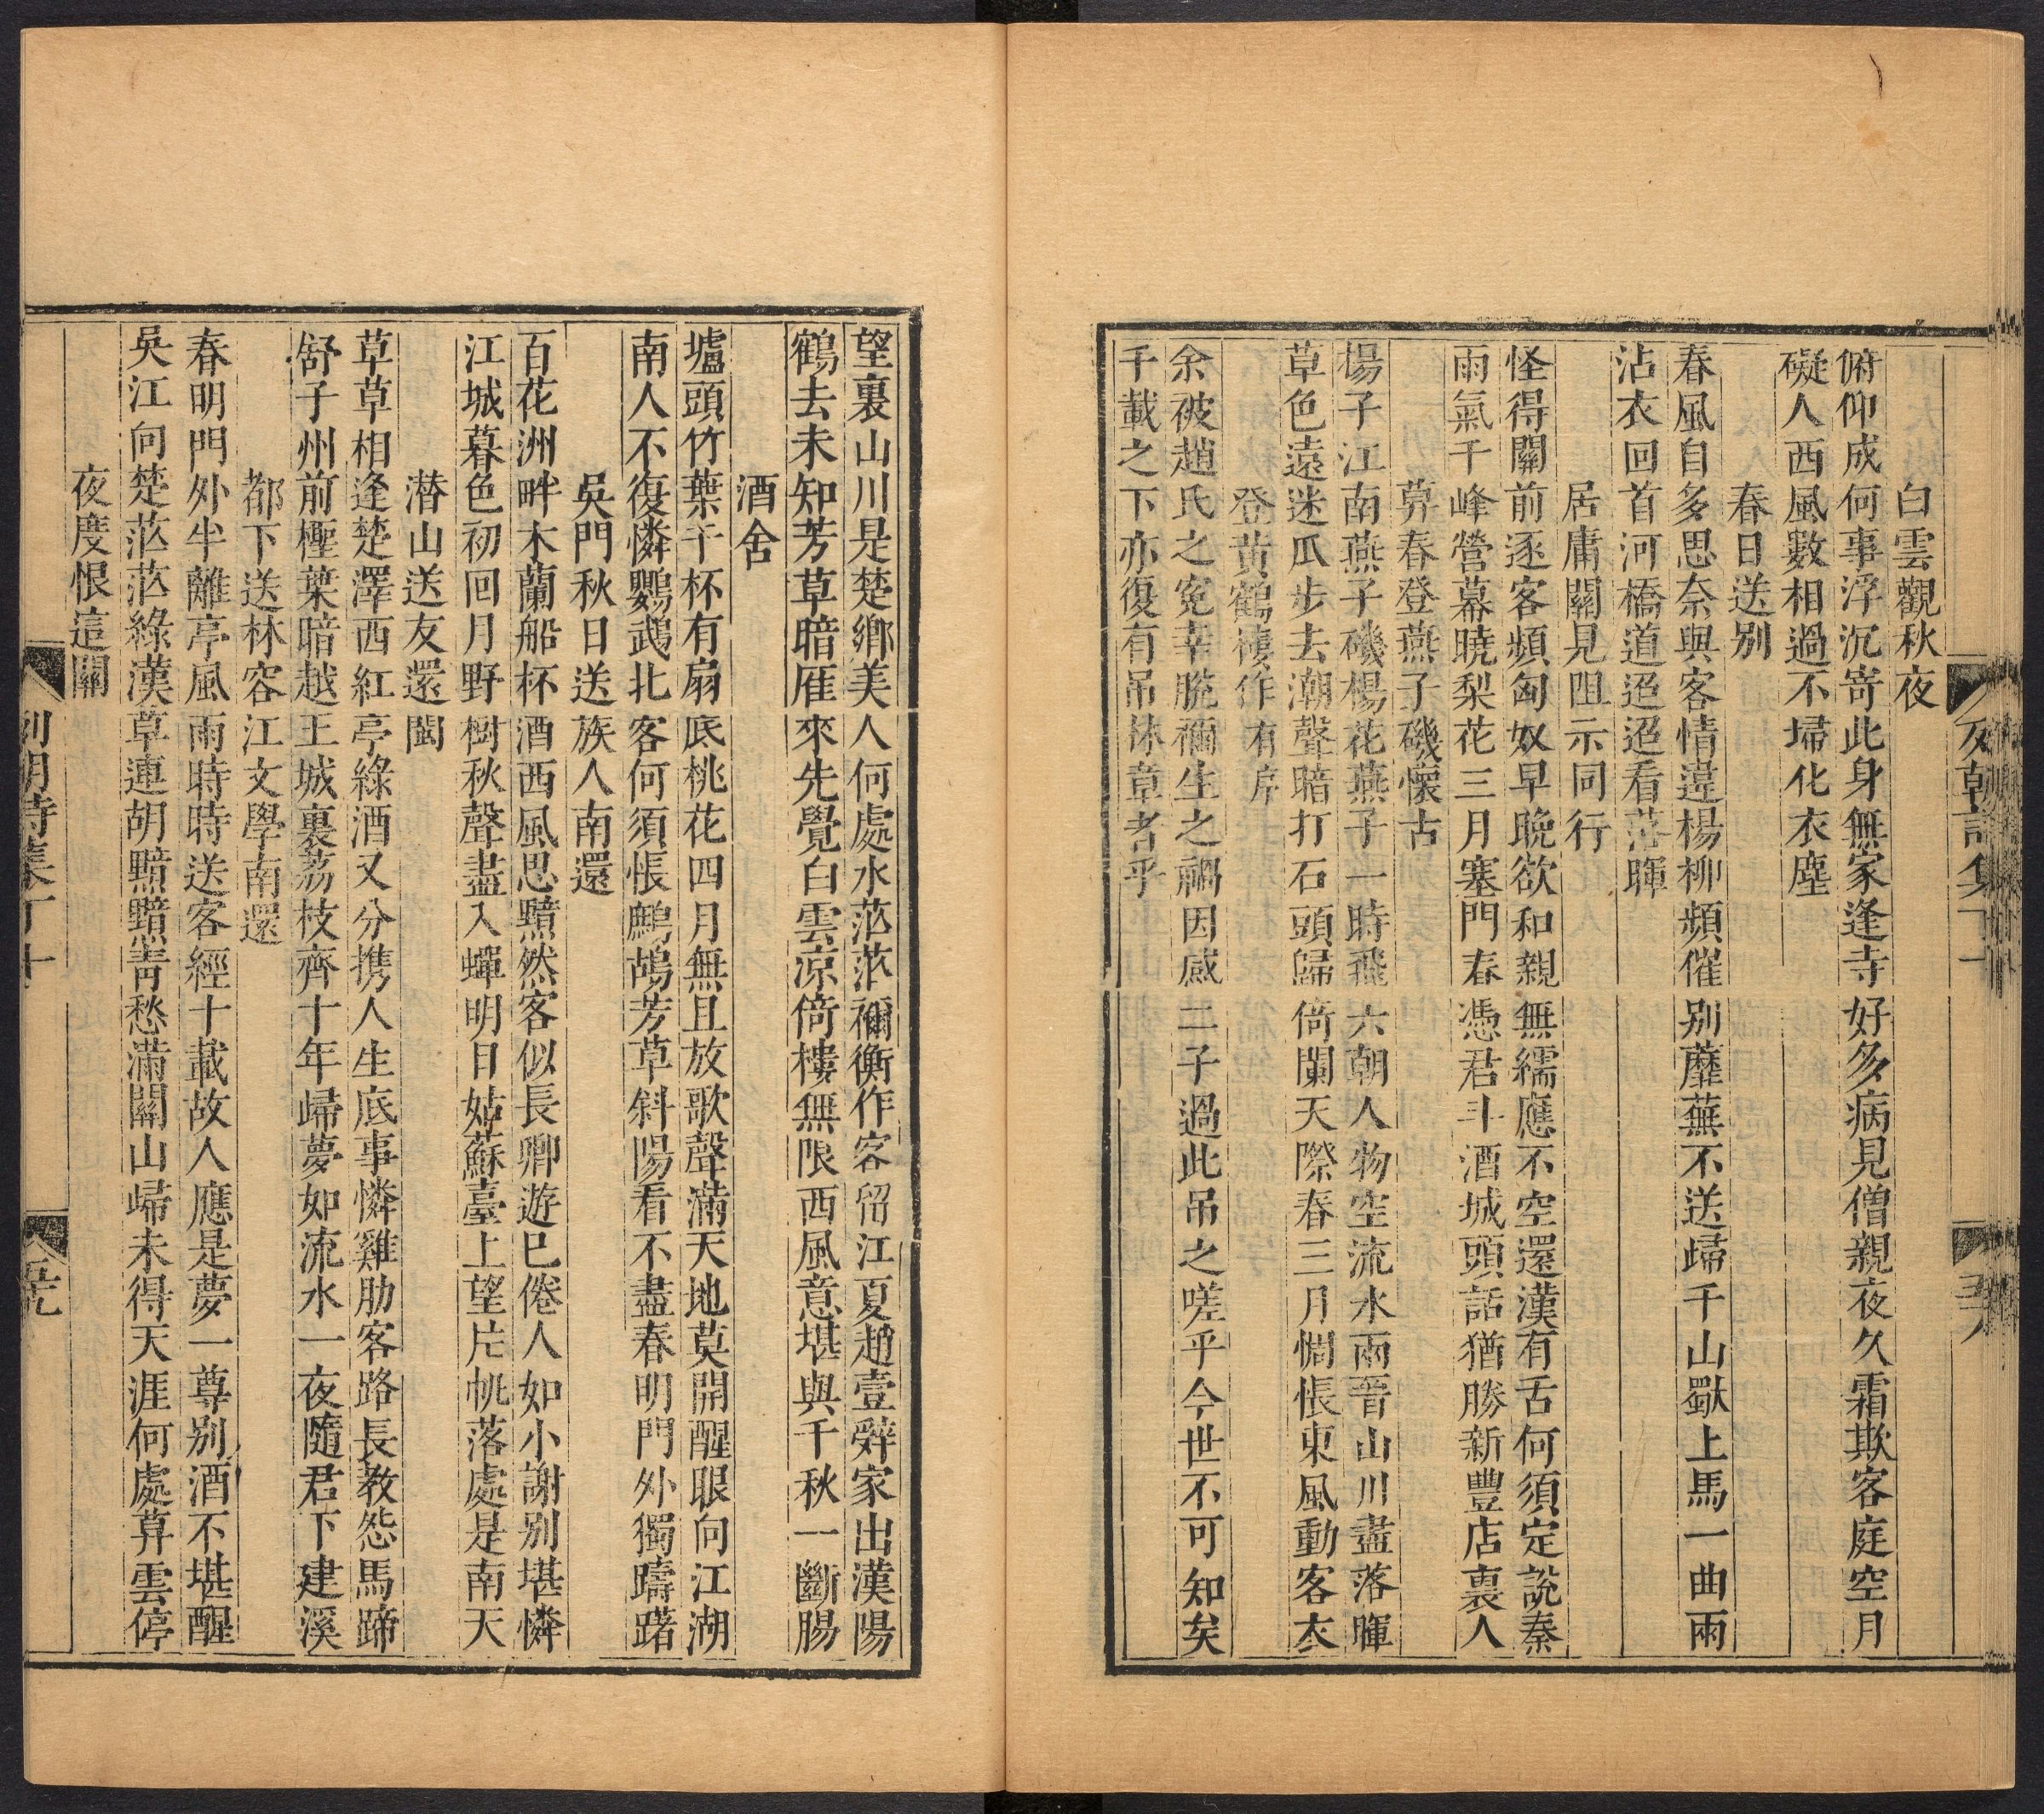 白雲觀秋夜
俯仰成何事浮沉寄此身無家逢寺好多病見僧親夜久霜欺客庭空月
礙人西風數相過不埽化衣塵
春日送别
春風自多思奈與客情違楊柳頻催别蘼蕪不送歸千山獄上馬一曲雨
沾衣回首河橋道迢迢看落暉
居庸關見阻示同行
怪得關前逐客頻匈奴早晚欲和親無繻應不空還漢有舌何須定說秦
雨氣千峰營幕曉梨花三月塞門春憑君斗酒城頭話猶勝新豐店裏人
莫春登燕子磯懷古
楊子江南燕子磯楊花燕子一時飛六朝人物空流水兩晉山川盡落暉
草色遠迷瓜步去潮聲暗打石頭歸倚闌天際春三月惆悵東風動客衣
登黄鶴樓作有序
余被趙氏之寃幸脫禰生之禍因感二子過此吊之嗟乎今世不可知矣
千載之下亦復有吊林章者乎
列朝詩集丁十
望裏山川是楚鄉美人何處水茫茫禰衡作客留江夏趙壹辭家出漢陽
鶴去未知芳草暗雁來先覺白雲凉倚樓無限西風意堪與千秋一斷腸
酒舍
壚頭竹葉千杯有扇底桃花四月無且放歌聲滿天地莫開醒眼向江湖
南人不復憐鸚鵡北客何須悵鷓鴣芳草斜陽看不盡春明門外獨躊躇
吳門秋日送族人南還
百花洲畔木蘭船杯酒西風思黯然客似長卿遊已倦人如小謝别堪憐
江城暮色初回月野樹秋聲盡入蟬明日姑蘇臺上望片帆落處是南天
潜山送友還閩
草草相逢楚澤西紅亭綠酒又分携人生底事憐雞肋客路長教怨馬蹄
舒子州前檉葉暗越王城裏荔枝齊十年歸夢如流水一夜隨君下建溪
都下送林容江文學南還
春明門外半離亭風雨時時送客經十載故人應是夢一尊别酒不堪醒
吳江向楚茫茫綠漢草連胡黯黯靑愁滿關山歸未得天涯何處莫雲停
夜度恨這關
列朝詩集丁十